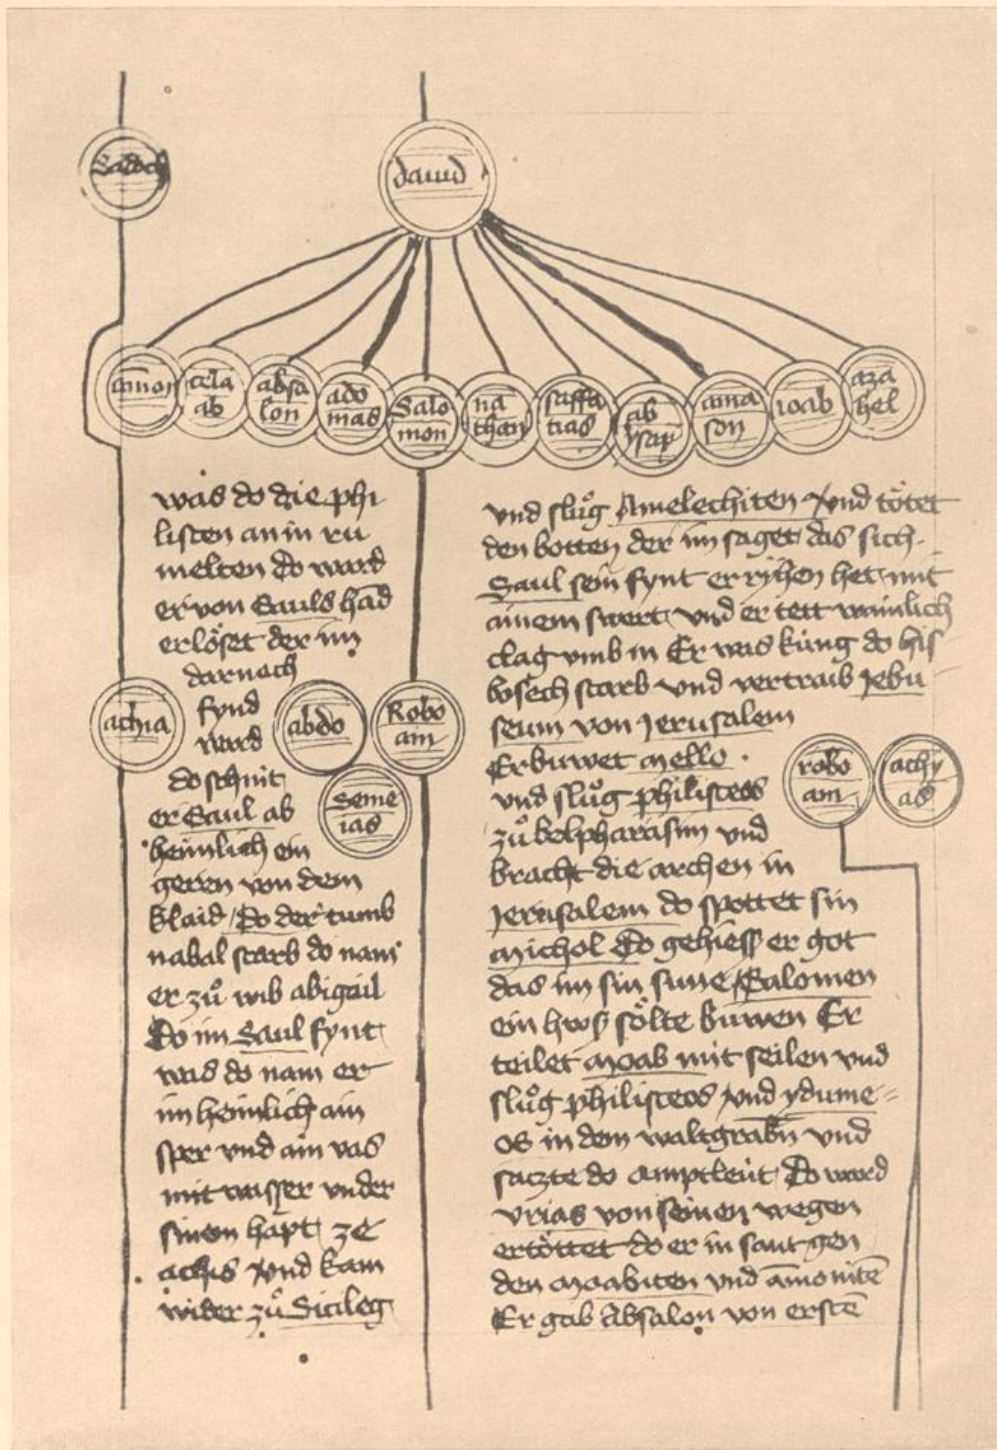 Sadoch
dauid
amon
cela
ab
absa
lon
ado
mas
Salo
mon
na
than
saffa
tias
ab
ysay
ama
son
ioab
aza
hel
was do die phi
listen an in ru
melten do ward
er von Sauls hād
erlöset der im
darnach
fynd
ward
do schnit
er Saul ab
heimlich ein
geren von dem
klaid / Do der tumb
nabal starb do nam
er zů wib abigail
Do im Saul fynt
was do nam er
im heimlich ain
sper vnd ain vas
mit wasser vnder
sinem hapt ze
achis vnd kam
wider zů Sicileg
achia
abdo
Robo
am
Seme
ias
vnd slůg Amelechiten vnd tötet
den botten der im saget das sich
Saul sein fynt er
het mit
ainem swert vnd er tett wainlich
clag vmb in Er was küng do his
bosech starb vnd vertraib Jebu
seum von Jerusalem
Er buwet mello
vnd slůg philisteos
zů belpharasim vnd
bracht die archen in
Jerusalem do spottet sin
Michol Do gehiess er got
das im sin sune Salomen
ein hws sölte buwen Er
teilet Moab mit seilen vnd
slůg philisteos vnd ydume-
os in dem waltgrabn vnd
saczte do amptleut Do ward
vrias von seinen wegen
ertöttet do er in sant gen
den Moabiten vnd āmonitē
Er gab Absalon von erstē
robo
am
achy
as